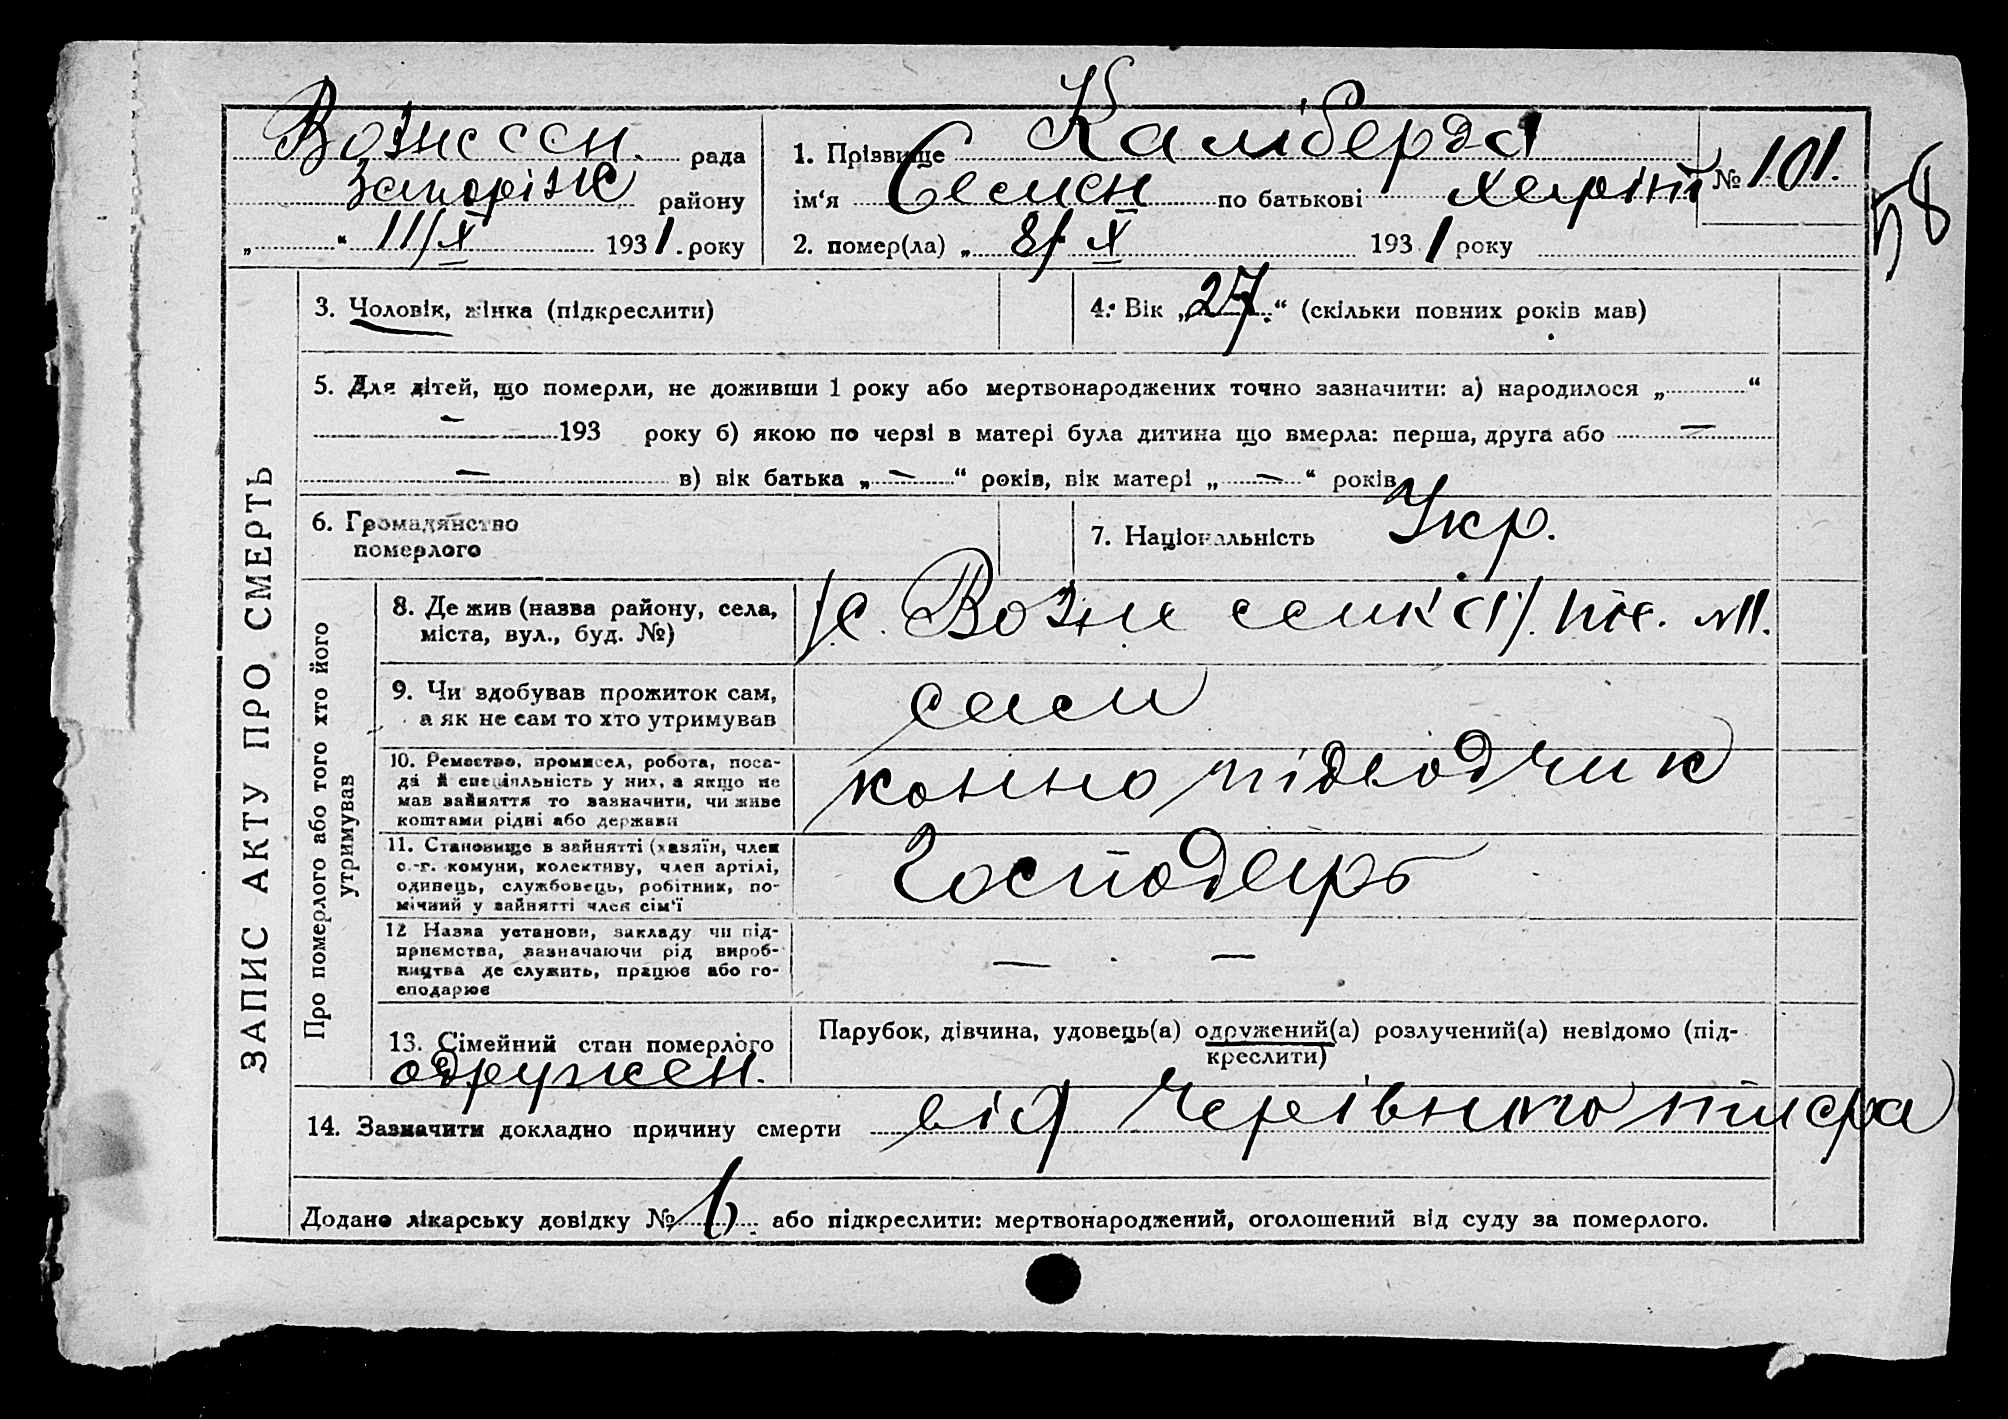 Вознесен. рада
Запорізьк району
„ “ 11/X 1931. року
1. Прізвище Камберда
ім‘я Семен по батькові
№ 101.
58
2. помер(ла) „ 8/X 1931 року
ЗАПИС АКТУ ПРО СМЕРТЬ
3. Чоловік, жінка (підкреслити)
4. Вік „27.“ (скільки повних років мав)
5. Для дітей, що померли, не доживши 1 року або мертвонароджених точно зазначити: а) народилося „ “
— 193 року б) якою по черзі в матері була дитина що вмерла: перша, друга або —
— в) вік батька „ — “ років, вік матері „ — “ років
6. Громадянство
померлого
7. Національність Укр.
Про померлого або того хто його
утримував
8. Де жив (назва району, села,
міста, вул., буд. №)
с. Вознесенка
9. Чи здобував прожиток сам,
а як не сам то хто утримував
сам
10. Ремество, промисел, робота, поса-
да й спеціяльність у них, а якщо не
мав зайняття то зазначити, чи живе
коштами рідні або держави
конно підводчик
11. Становище в зайнятті (хазяїн, член
с.-г. комуни, колективу, член артілі,
одинець, службовець, робітник, по-
мічний у зайнятті член сім‘ї
Господарь
12 Назва установи, закладу чи під-
приємства, зазначаючи рід вироб-
ництва де служить, працює або го-
сподарює
— —
13. Сімейний стан померлого
одружен.
Парубок, дівчина, удовець(а) одружений(а) розлучений(а) невідомо (під-
креслити)
14. Зазначити докладно причину смерти від Черевного тифа
Додано лікарську довідку № 6. або підкреслити: мертвонароджений, оголошений від суду за померлого.